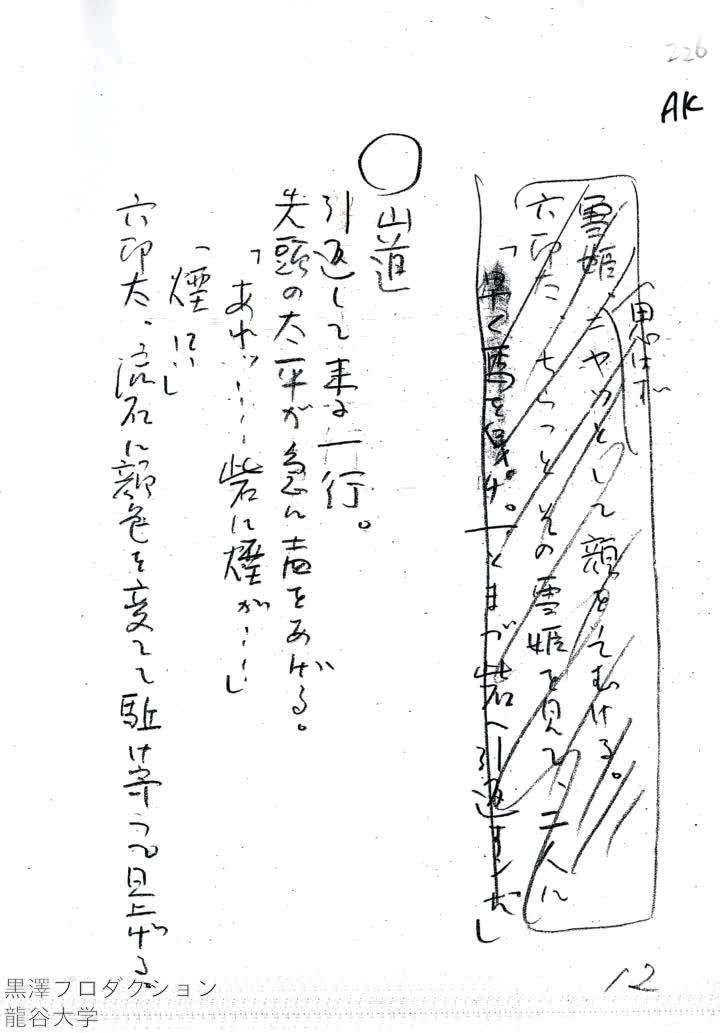 226
AK
思はず
雪姫、ニヤッとして顔をそむける。
六郎太、ちらっとその雪姫を見て、二人に
「早く馬を曳け。一とまづ砦へ引返すんだ」
○山道
引返して来る一行。
先頭の太平が急に声をあげる。
「あれッ……砦に煙が……」
「煙に」
六郎太、流石に顔色を変えて駈け寄って見上げる。
12
黒澤プロダクション
龍谷大学